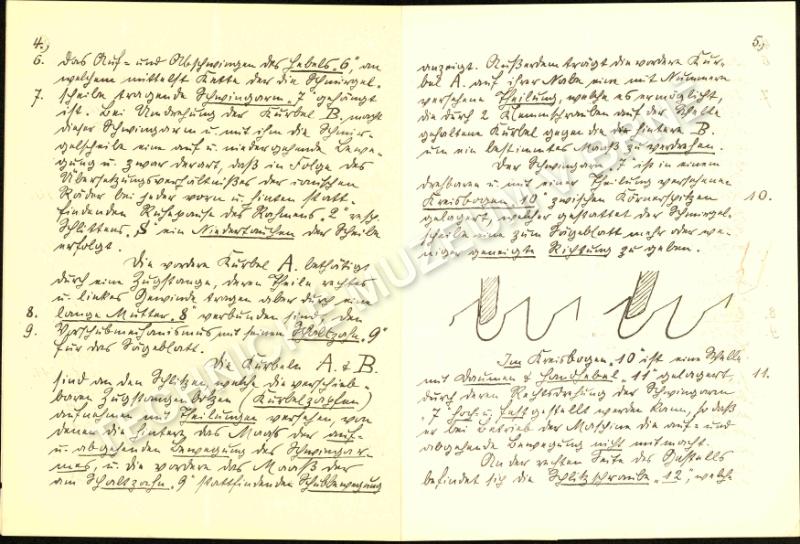 4.,
6. das Auf- und Abschwingen des Hebels „6" an
welchem mittelst Kette der die Schmirgel-
7. scheibe tragende Schwingarm „7" gehängt
ist. Bei Umdrehung der Kurbel B. macht
dieser Schwingarm u. mit ihm die Schmir-
gelscheibe eine auf u. niedergehende Bewe-
gung u. zwar derart, daß in Folge des
Übersetzungsverhältnißes der konischen
Räder bei jeder vorn u. hinten statt-
findenden Ruhepause des Rahmens „2" resp.
Schlittens „3" ein Niedertauchen der Scheibe
erfolgt.
Die vordere Kurbel A. bethätigt
durch eine Zugstange, deren Theile rechtes
u. linkes Gewinde tragen aber durch eine
8. lange Mutter „8" verbunden sind, den
9. Vorschubmechanismus mit seinem Schaltzahn „9"
für das Sägeblatt.
Die Kurbeln A. & B.
sind an den Schlitzen, welche die verschieb-
baren Zugstangenbolzen (Kurbelzapfen)
aufnehmen mit Theilungen versehen, von
denen die hintere das Maaß der auf-
u. abgehenden Bewegung des Schwingar-
mes, u. die vordere das Maaß der
am Schaltzahn „9" stattfindenden Schubbewegung
5.,
anzeigt. Außerdem trägt die vordere Kur-
bel A. auf ihrer Nabe eine mit Nummern
versehene Theilung, welche es ermöglicht,
die durch 2 Klemmschrauben auf der Welle
gehaltene Kurbel gegen die hintere B.
um ein bestimmtes Maaß zu verdrehen.
Der Schwingarm „7" ist in einem
drehbaren u. mit einer Theilung versehenen
Kreisbogen „10" zwischen Körnerspitzen 10.
gelagert, welcher gestattet der Schmirgel-
scheibe eine zum Sägeblatt mehr oder we-
niger geneigte Richtung zu geben.
Im Kreisbogen „10" ist eine Welle
mit Daumen & Handhebel „11" gelagert, 11.
durch deren Rechtsdrehung der Schwingarm
„7" hoch u. festgestellt werden kann, so daß
er bei Betrieb der Maschine die auf- und
abgehende Bewegung nicht mitmacht.
An der rechten Seite des Gestells
befindet sich die Schlitzschraube „12", welche
TECHNICKÉ MUZEUM V BRNĚ